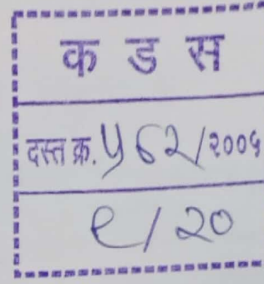 क ड स
दस्त क्र. ५६२/२००५
९/२०